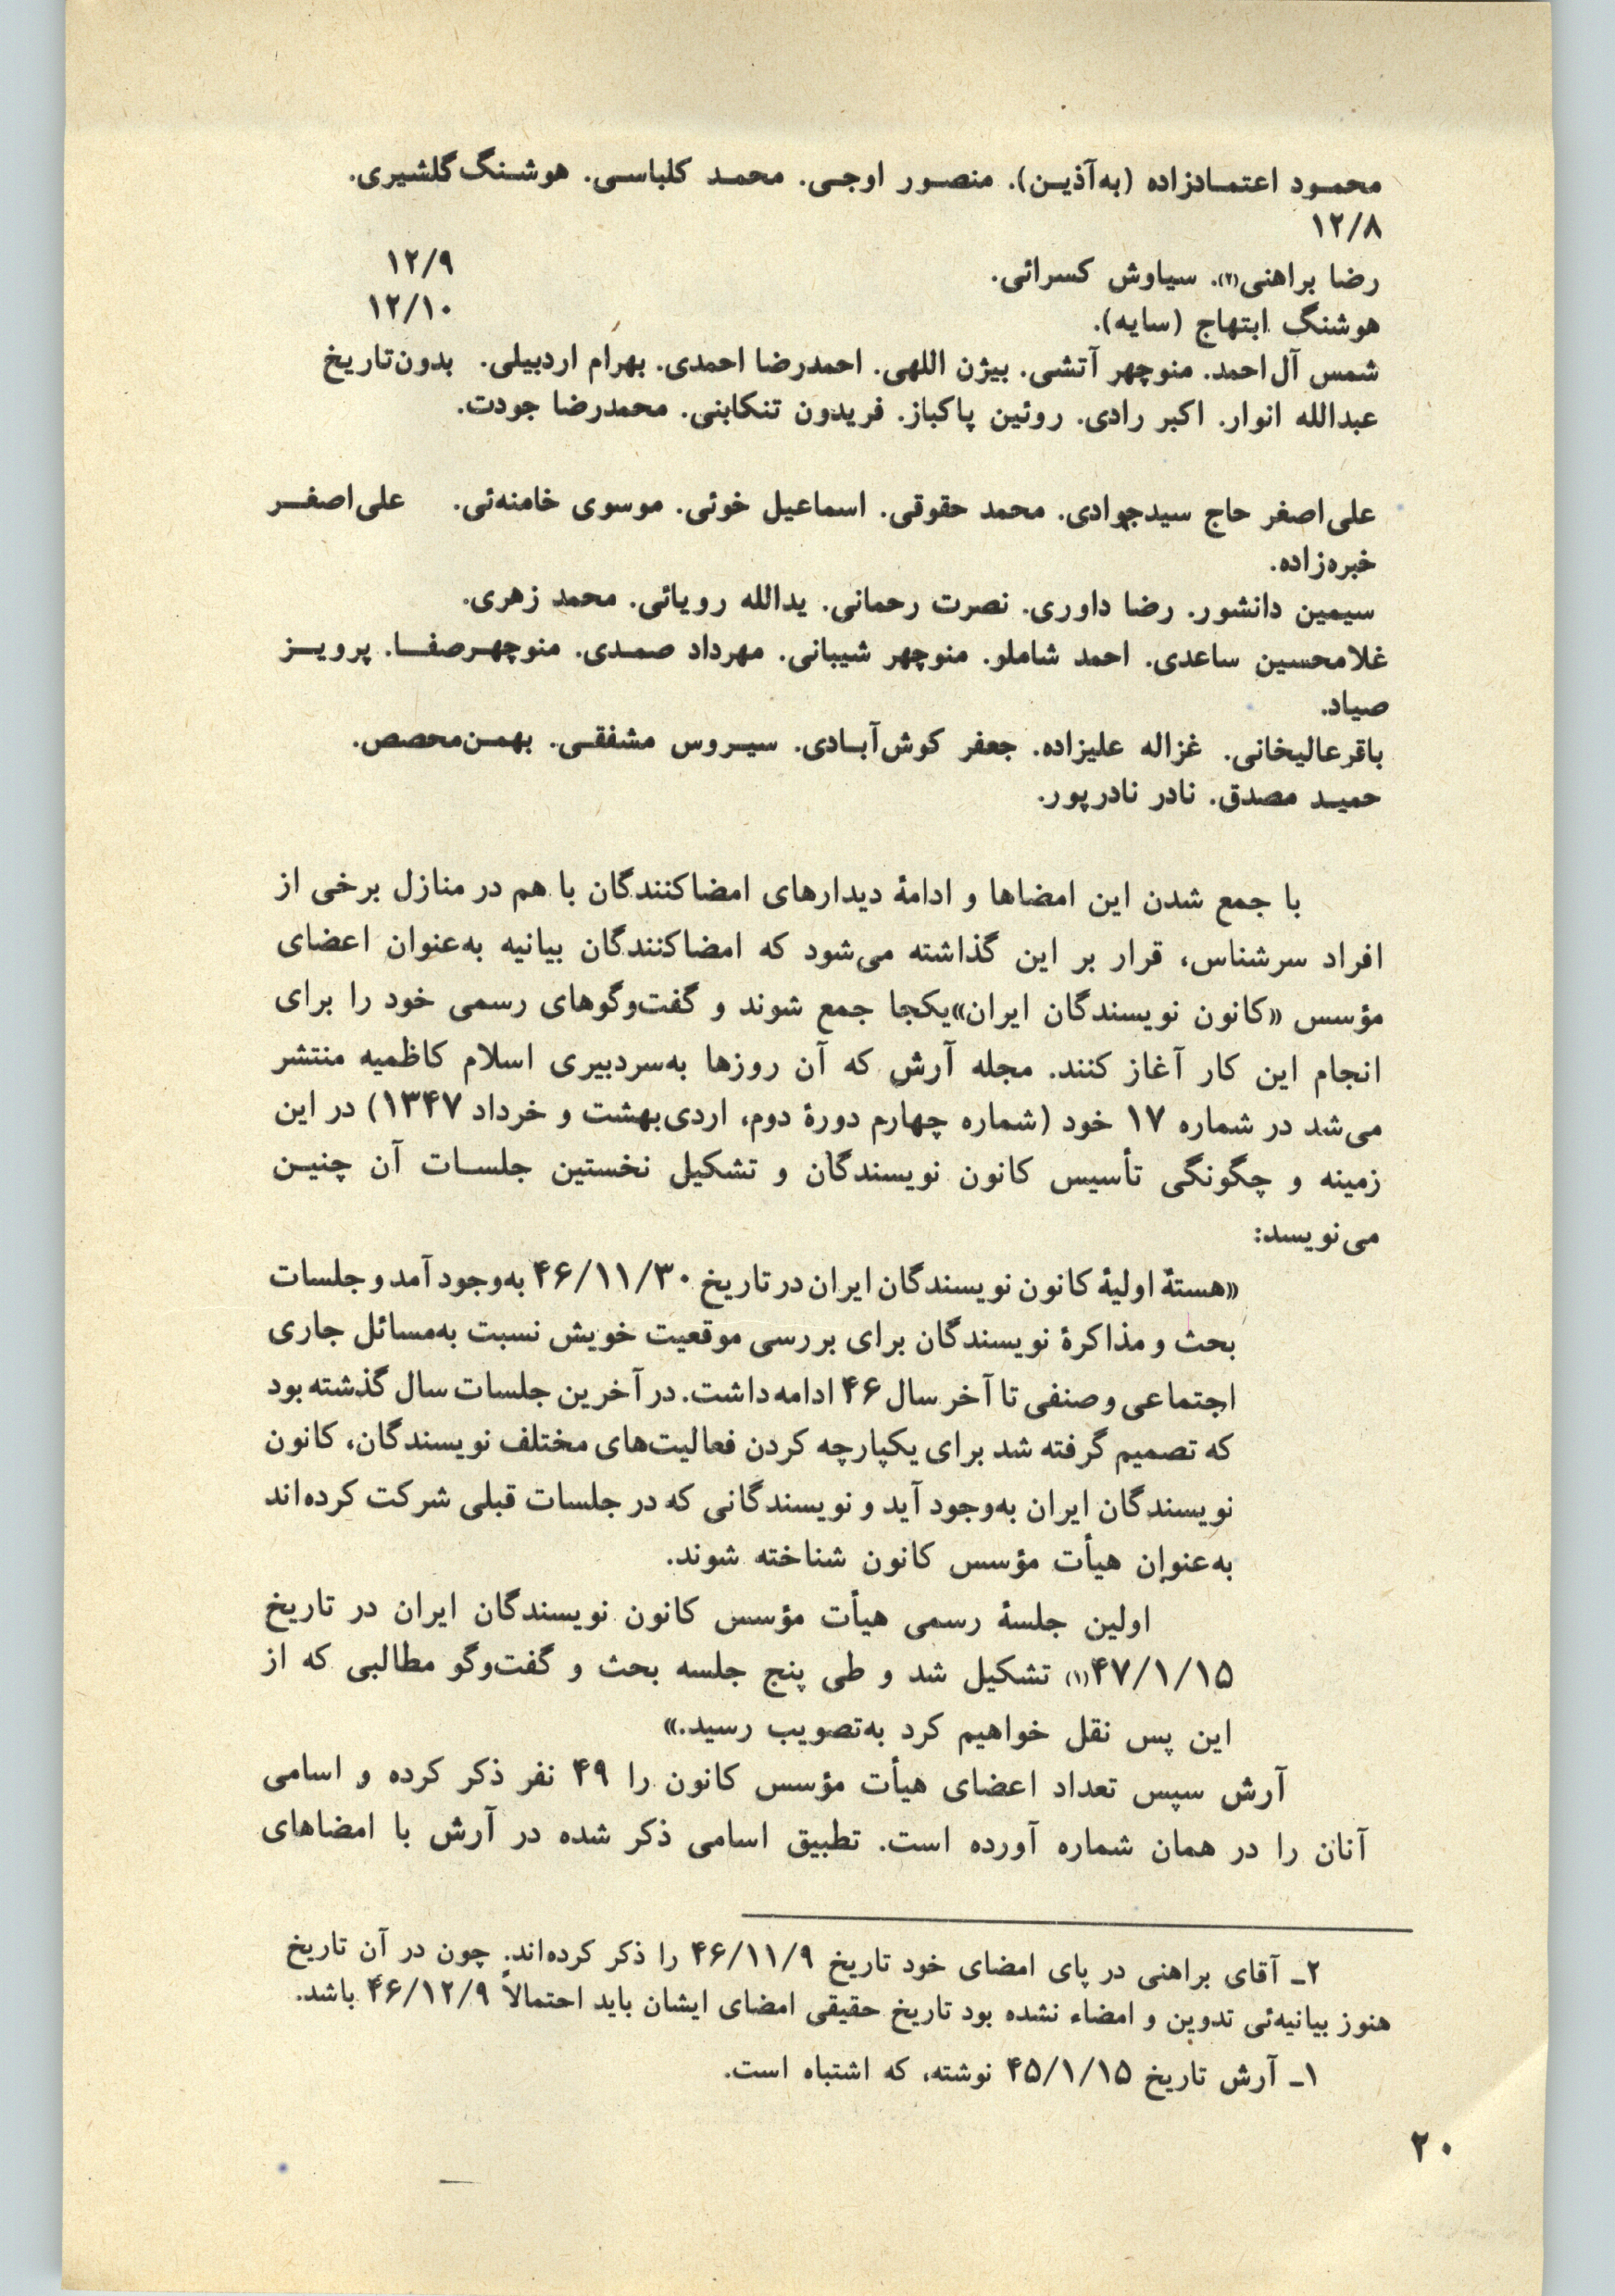 محمـود اعتمـادزاده (به‌آذیـن). منصـور اوجـی. محمـد کلباسـی. هوشـنگ گلشیری.
۱۲/۸
رضا براهنی(۲). سیاوش کسرائی. ۱۲/۹
هوشنگ ابتهاج (سایه). ۱۲/۱۰
شمس آل‌احمد. منوچهر آتشی. بیژن اللهی. احمدرضا احمدی. بهرام اردبیلی. بدون‌تاریخ
عبدالله انوار. اکبر رادی. روئین پاکباز. فریدون تنکابنی. محمدرضا جودت.
علی‌اصغر حاج سیدجوادی. محمد حقوقی. اسماعیل خوئی. موسوی خامنه‌ئی. علی‌اصغـر
خبره‌زاده.
سیمین دانشور. رضا داوری. نصرت رحمانی. یدالله رویائی. محمد زهری.
غلامحسین ساعدی. احمد شاملو. منوچهر شیبانی. مهرداد صمـدی. منوچهـرصفـا. پرویـز
صیاد.
باقرعالیخانی. غزاله علیزاده. جعفر کوش‌آبـادی. سیـروس مشفقـی. بهمـن‌محصص.
حمیـد مصدق. نادر نادرپور.
با جمع شدن این امضاها و ادامهٔ دیدارهای امضاکنندگان با هم در منازل برخی از
افراد سرشناس، قرار بر این گذاشته می‌شود که امضاکنندگان بیانیه به‌عنوان اعضای
مؤسس «کانون نویسندگان ایران»یکجا جمع شوند و گفت‌وگوهای رسمی خود را برای
انجام این کار آغاز کنند. مجله آرش که آن روزها به‌سردبیری اسلام کاظمیه منتشر
می‌شد در شماره ۱۷ خود (شماره چهارم دورهٔ دوم، اردی‌بهشت و خرداد ۱۳۴۷) در این
زمینه و چگونگی تأسیس کانون نویسندگان و تشکیل نخستین جلسـات آن چنیـن
می‌نویسد:
«هستهٔ اولیهٔ کانون نویسندگان ایران در تاریخ ۴۶/۱۱/۳۰ به‌وجود آمد و جلسات
بحث و مذاکرهٔ نویسندگان برای بررسی موقعیت خویش نسبت به‌مسائل جاری
اجتماعی و صنفی تا آخر سال ۴۶ ادامه داشت. در آخرین جلسات سال گذشته بود
که تصمیم گرفته شد برای یکپارچه کردن فعالیت‌های مختلف نویسندگان، کانون
نویسندگان ایران به‌وجود آید و نویسندگانی که در جلسات قبلی شرکت کرده‌اند
به‌عنوان هیأت مؤسس کانون شناخته شوند.
اولین جلسهٔ رسمی هیأت مؤسس کانون نویسندگان ایران در تاریخ
۴۷/۱/۱۵(۱) تشکیل شد و طی پنج جلسه بحث و گفت‌وگو مطالبی که از
این پس نقل خواهیم کرد به‌تصویب رسید.»
آرش سپس تعداد اعضای هیأت مؤسس کانون را ۴۹ نفر ذکر کرده و اسامی
آنان را در همان شماره آورده است. تطبیق اسامی ذکر شده در آرش با امضاهای
۲ـ آقای براهنی در پای امضای خود تاریخ ۴۶/۱۱/۹ را ذکر کرده‌اند. چون در آن تاریخ
هنوز بیانیه‌ئی تدوین و امضاء نشده بود تاریخ حقیقی امضای ایشان باید احتمالاً ۴۶/۱۲/۹ باشد.
۱ـ آرش تاریخ ۴۵/۱/۱۵ نوشته، که اشتباه است.
۲۰